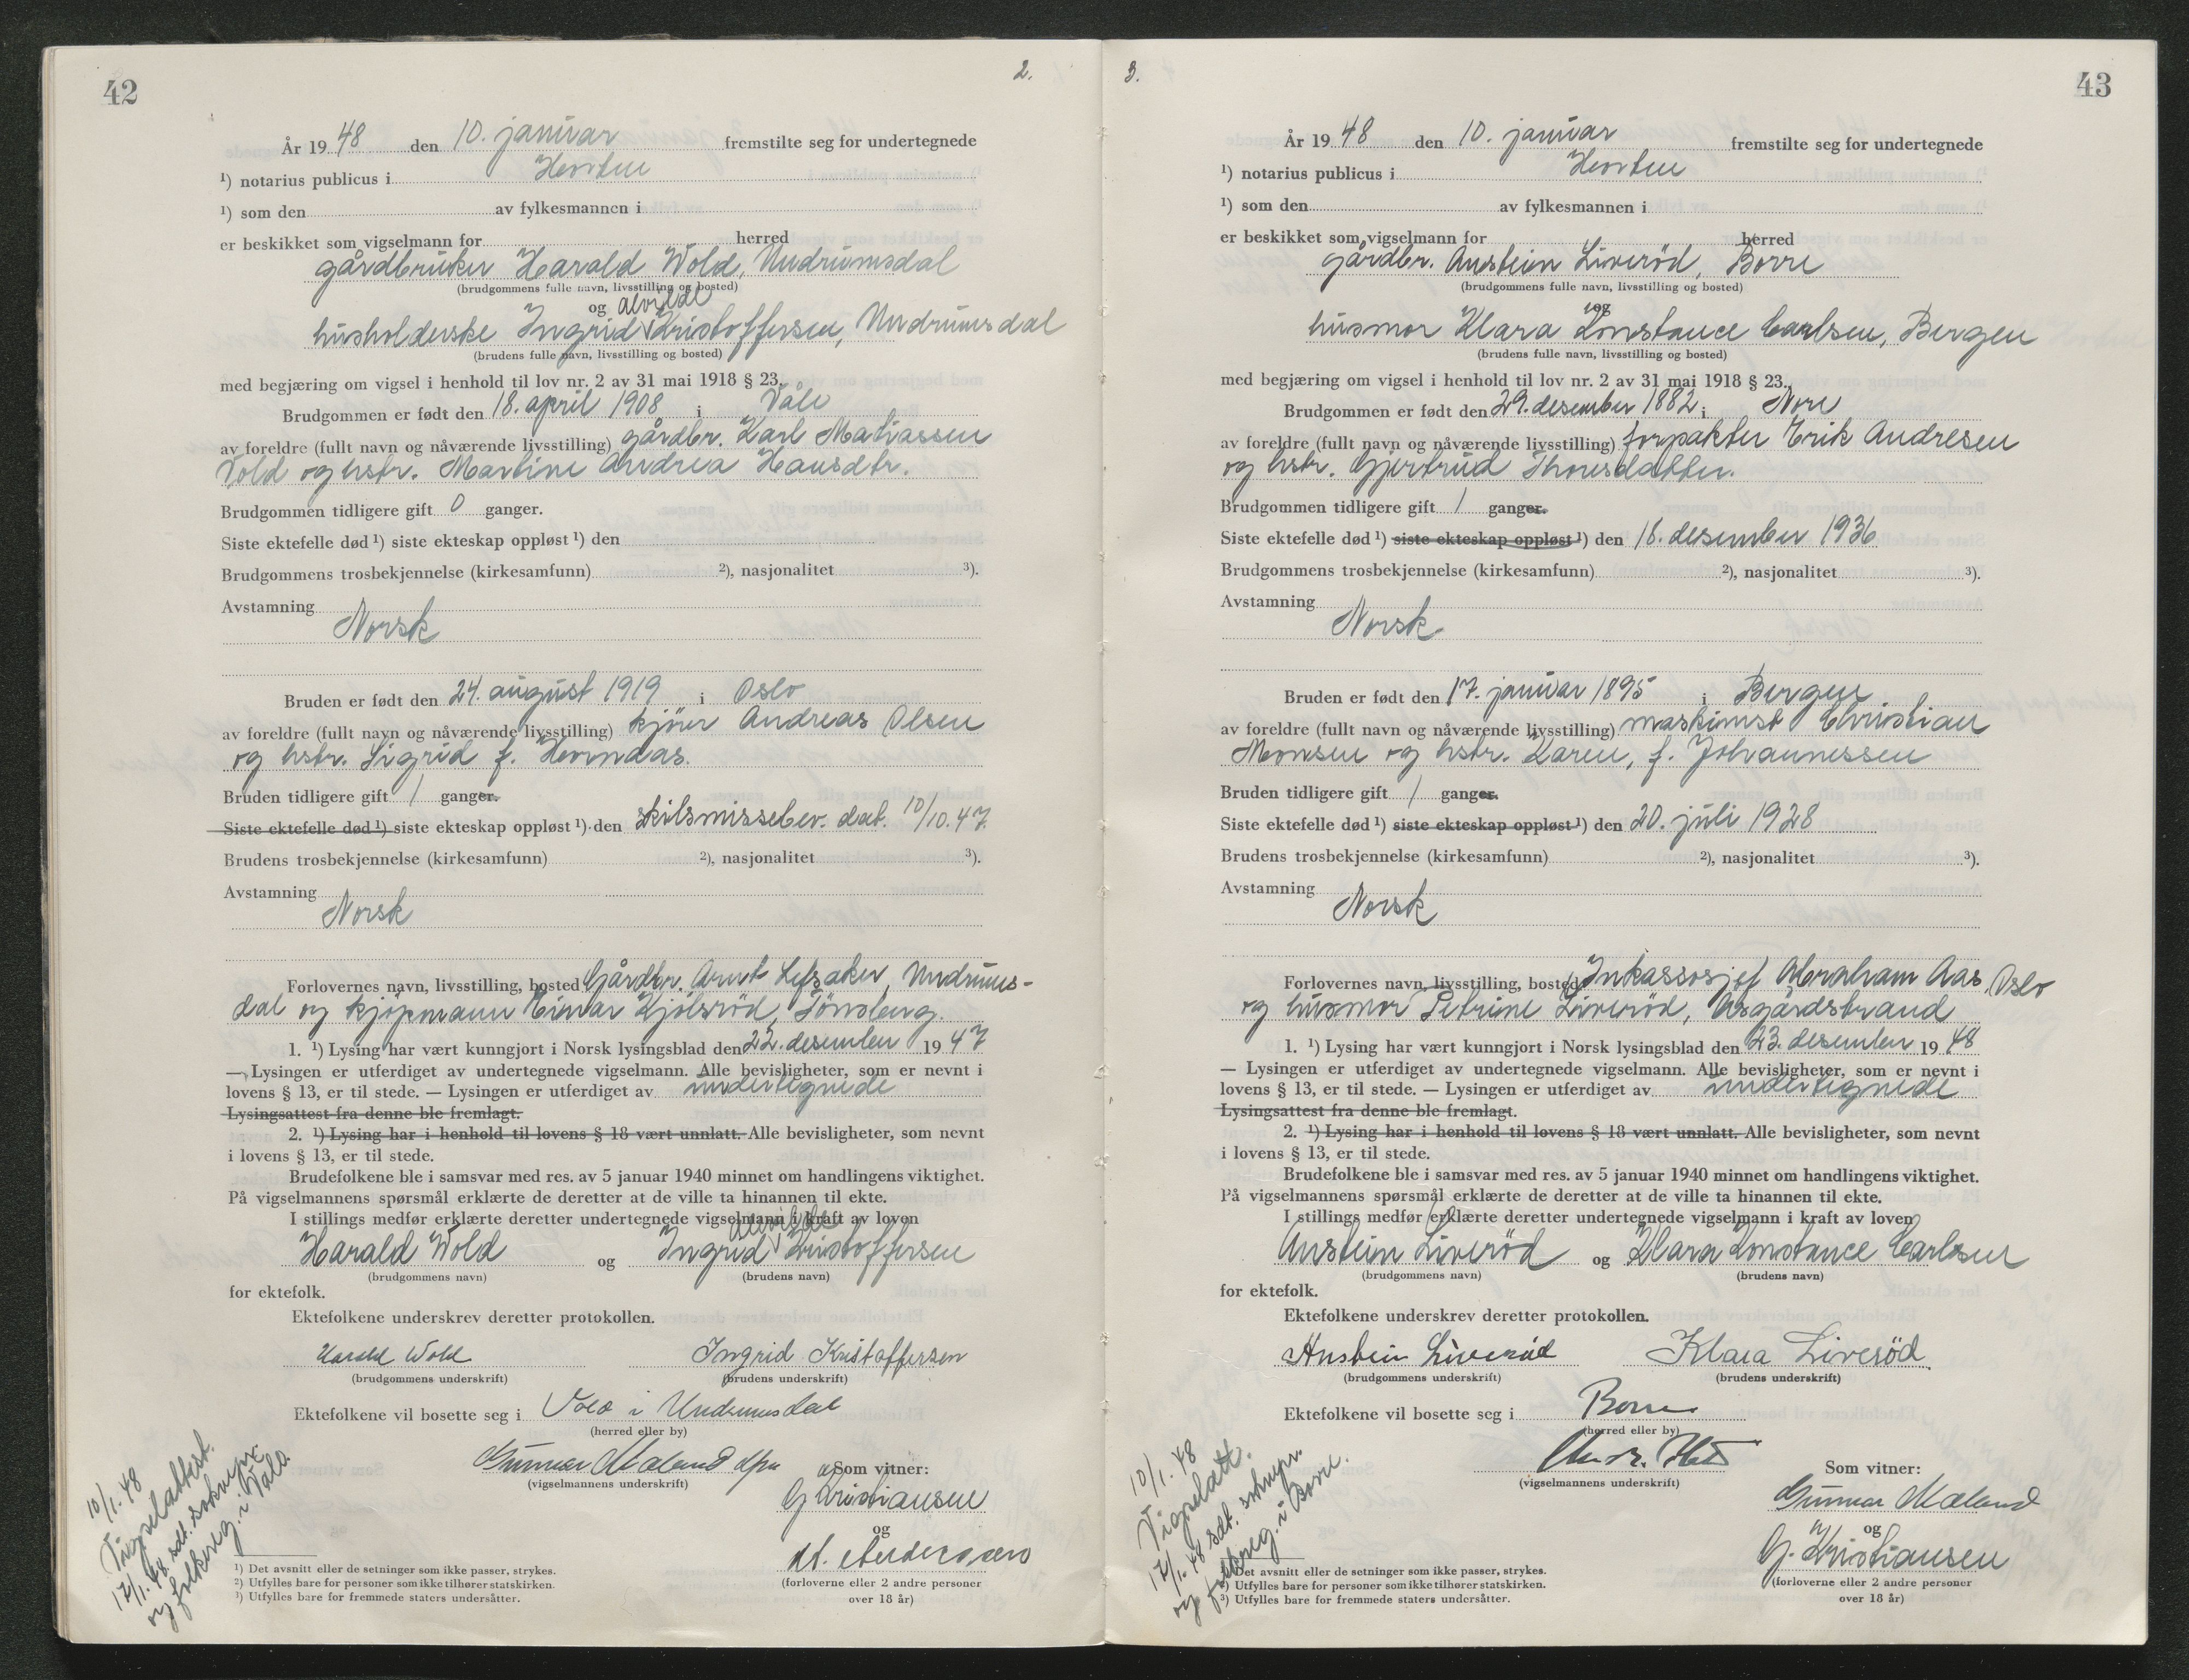 42
2.
År 1948 den 10. januar fremstilte seg for undertegnede
¹) notarius publicus i Horten
¹) som den av fylkesmannen i
er beskikket som vigselmann for herred
gårdbruker Harald Wold, Undrumsdal
(brudgommens fulle navn, livsstilling og bosted)
og Alvilde
husholderske Ingrid Kristoffersen, Undrumsdal
(brudens fulle navn, livsstilling og bosted)
med begjæring om vigsel i henhold til lov nr. 2 av 31 mai 1918 § 23.
Brudgommen er født den 18. april 1908 i Våle
av foreldre (fullt navn og nåværende livsstilling) gårdbr. Karl Mathiassen
Vold og hstr. Martine Andrea Hansdtr.
Brudgommen tidligere gift 0 ganger.
Siste ektefelle død ¹) siste ekteskap oppløst ¹) den
Brudgommens trosbekjennelse (kirkesamfunn) ²), nasjonalitet ³).
Avstamning
Norsk
Bruden er født den 24. august 1919 i Oslo
av foreldre (fullt navn og nåværende livsstilling) kjører Andreas Olsen
og hstr. Sigrid f. Horndas.
Bruden tidligere gift 1 ganger.
Siste ektefelle død ¹) siste ekteskap oppløst ¹) den skilsmissebev. dat. 10/10.47.
Brudens trosbekjennelse (kirkesamfunn) ²), nasjonalitet ³).
Avstamning
Norsk
Forlovernes navn, livsstilling, bosted Gårdbr. Arnt Lefsaker, Undrums-
dal og kjøpmann Einar Kjølsrød, Tønsberg.
1. ¹) Lysing har vært kunngjort i Norsk lysingsblad den 22. desember 1947
— Lysingen er utferdiget av undertegnede vigselmann. Alle bevisligheter, som er nevnt i
lovens § 13, er til stede. — Lysingen er utferdiget av undertegnede
Lysingsattest fra denne ble fremlagt.
2. ¹) Lysing har i henhold til lovens § 18 vært unnlatt. Alle bevisligheter, som nevnt
i lovens § 13, er til stede.
Brudefolkene ble i samsvar med res. av 5 januar 1940 minnet om handlingens viktighet.
På vigselmannens spørsmål erklærte de deretter at de ville ta hinannen til ekte.
I stillings medfør erklærte deretter undertegnede vigselmann i kraft av loven
Alvilde
Harald Wold og Ingrid Kristoffersen
(brudgommens navn) (brudens navn)
for ektefolk.
Ektefolkene underskrev deretter protokollen.
Harald Wold Ingrid Kristoffersen
(brudgommens underskrift) (brudens underskrift)
Ektefolkene vil bosette seg i Vold i Undrumsdal
(herred eller by)
Gunnar Mæland dfm
(vigselmannens underskrift)
Som vitner:
G Kristiansen
og
M. Andersen
(forloverne eller 2 andre personer
over 18 år)
10/1.48
Vigselattest.
17/1.48. sdt. soknepr.
og folkereg. i Våle.
¹) Det avsnitt eller de setninger som ikke passer, strykes.
²) Utfylles bare for personer som ikke tilhører statskirken.
³) Utfylles bare for fremmede staters undersåtter.
3.
43
År 1948 den 10. januar fremstilte seg for undertegnede
¹) notarius publicus i Horten
¹) som den av fylkesmannen i
er beskikket som vigselmann for herred
gårdbr. Anstein Liverød, Borre
(brudgommens fulle navn, livsstilling og bosted)
og
husmor Klara Konstance Carlsen, Bergen
(brudens fulle navn, livsstilling og bosted)
med begjæring om vigsel i henhold til lov nr. 2 av 31 mai 1918 § 23.
Brudgommen er født den 29. desember 1882 i Nore
av foreldre (fullt navn og nåværende livsstilling) forpakter Erik Andresen
og hstr. Gjertrud Thoresdatter.
Brudgommen tidligere gift 1 ganger.
Siste ektefelle død ¹) siste ekteskap oppløst ¹) den 18. desember 1936
Brudgommens trosbekjennelse (kirkesamfunn) ²), nasjonalitet ³).
Avstamning
Norsk
Bruden er født den 17. januar 1895 i Bergen
av foreldre (fullt navn og nåværende livsstilling) maskinist Christian
Monsen og hstr. Karen, f. Johannessen
Bruden tidligere gift 1 ganger.
Siste ektefelle død ¹) siste ekteskap oppløst ¹) den 20. juli 1928
Brudens trosbekjennelse (kirkesamfunn) ²), nasjonalitet ³).
Avstamning
Norsk
Forlovernes navn, livsstilling, bosted Inkassosjef Abraham Aas, Oslo
og husmor Petrine Liverød, Åsgårdstrand
1. ¹) Lysing har vært kunngjort i Norsk lysingsblad den 23. desember 1948
— Lysingen er utferdiget av undertegnede vigselmann. Alle bevisligheter, som er nevnt i
lovens § 13, er til stede. — Lysingen er utferdiget av undertegnede
Lysingsattest fra denne ble fremlagt.
2. ¹) Lysing har i henhold til lovens § 18 vært unnlatt. Alle bevisligheter, som nevnt
i lovens § 13, er til stede.
Brudefolkene ble i samsvar med res. av 5 januar 1940 minnet om handlingens viktighet.
På vigselmannens spørsmål erklærte de deretter at de ville ta hinannen til ekte.
I stillings medfør erklærte deretter undertegnede vigselmann i kraft av loven
Anstein Liverød og Klara Konstance Carlsen
(brudgommens navn) (brudens navn)
for ektefolk.
Ektefolkene underskrev deretter protokollen.
Anstein Liverød Klara Liverød
(brudgommens underskrift) (brudens underskrift)
Ektefolkene vil bosette seg i Borre
(herred eller by)
(vigselmannens underskrift)
Som vitner:
Gunnar Mæland
og
G. Kristiansen
(forloverne eller 2 andre personer
over 18 år)
10/1.48
Vigselatt.
17/1.48 sdt. soknepr.
og folkereg. i Borre.
¹) Det avsnitt eller de setninger som ikke passer, strykes.
²) Utfylles bare for personer som ikke tilhører statskirken.
³) Utfylles bare for fremmede staters undersåtter.